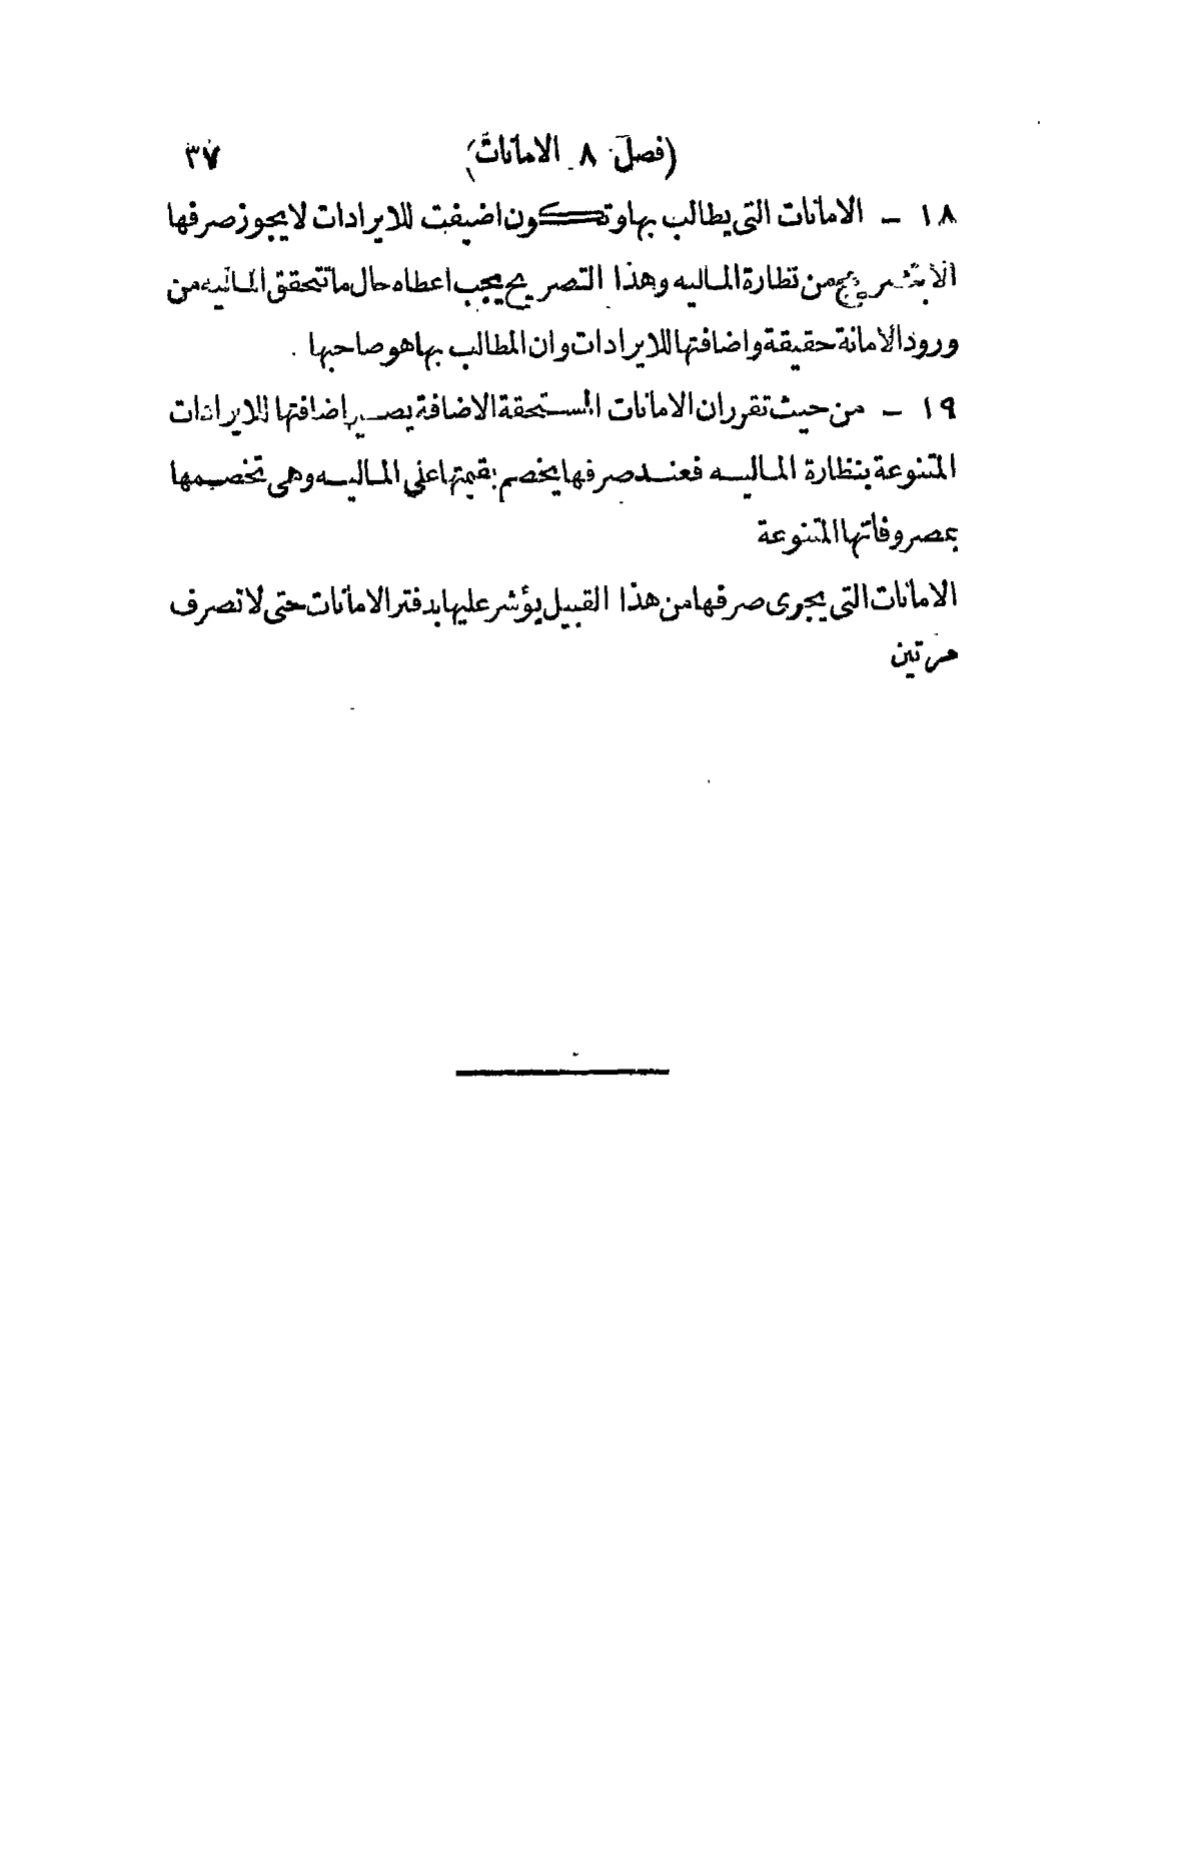 (فصل ٨ الامانات) ٣٧
١٨ ـ الامانات التى يطالب بها وتكون اضيفت للايرادات لا يجوز صرفها
الا بتصريح من نظارة الماليه وهذا التصريح يجب اعطاه حال ما تتحقق الماليه من
ورود الامانة حقيقة واضافتها للايرادات وان المطالب بها هو صاحبها .
١٩ ـ من حيث تقرر ان الامانات المستحقة الاضافة يصير اضافتها للايرادات
المتنوعة بنظارة الماليه فعند صرفها يخصم بقيمتها على الماليه وهى تخصمها
بمصروفاتها المتنوعة
الامانات التى يجرى صرفها من هذا القبيل يؤشر عليها بدفتر الامانات حتى لا تصرف
مرتين